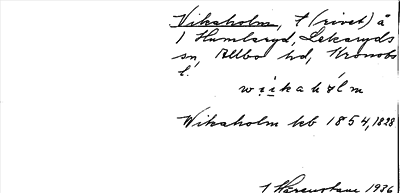 Vikaholm, t (rivet) å
1 Humlaryd, Lekaryds
sn, Allbo hd, Kronobs
l.
wiikahólm
Wikaholm kb 1854, 1828
1936